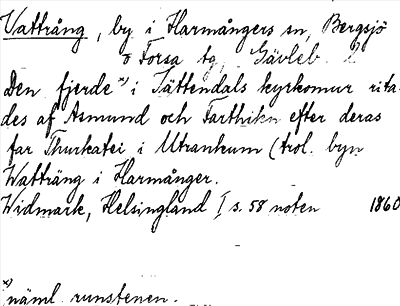 Vattrång, by i Harmångers sn, Bergsjö
o Forsa tg, Gävleb. l.
Den fjerde x) i Jättendals kyrkomur rita-
des af Asmund och Farthikn efter deras
far Thurkatei i Utrankum (trol. byn
Watträng i Harmånger.
Widmark, Helsingland I s. 58 noten 1860
x) näml. runstenen.